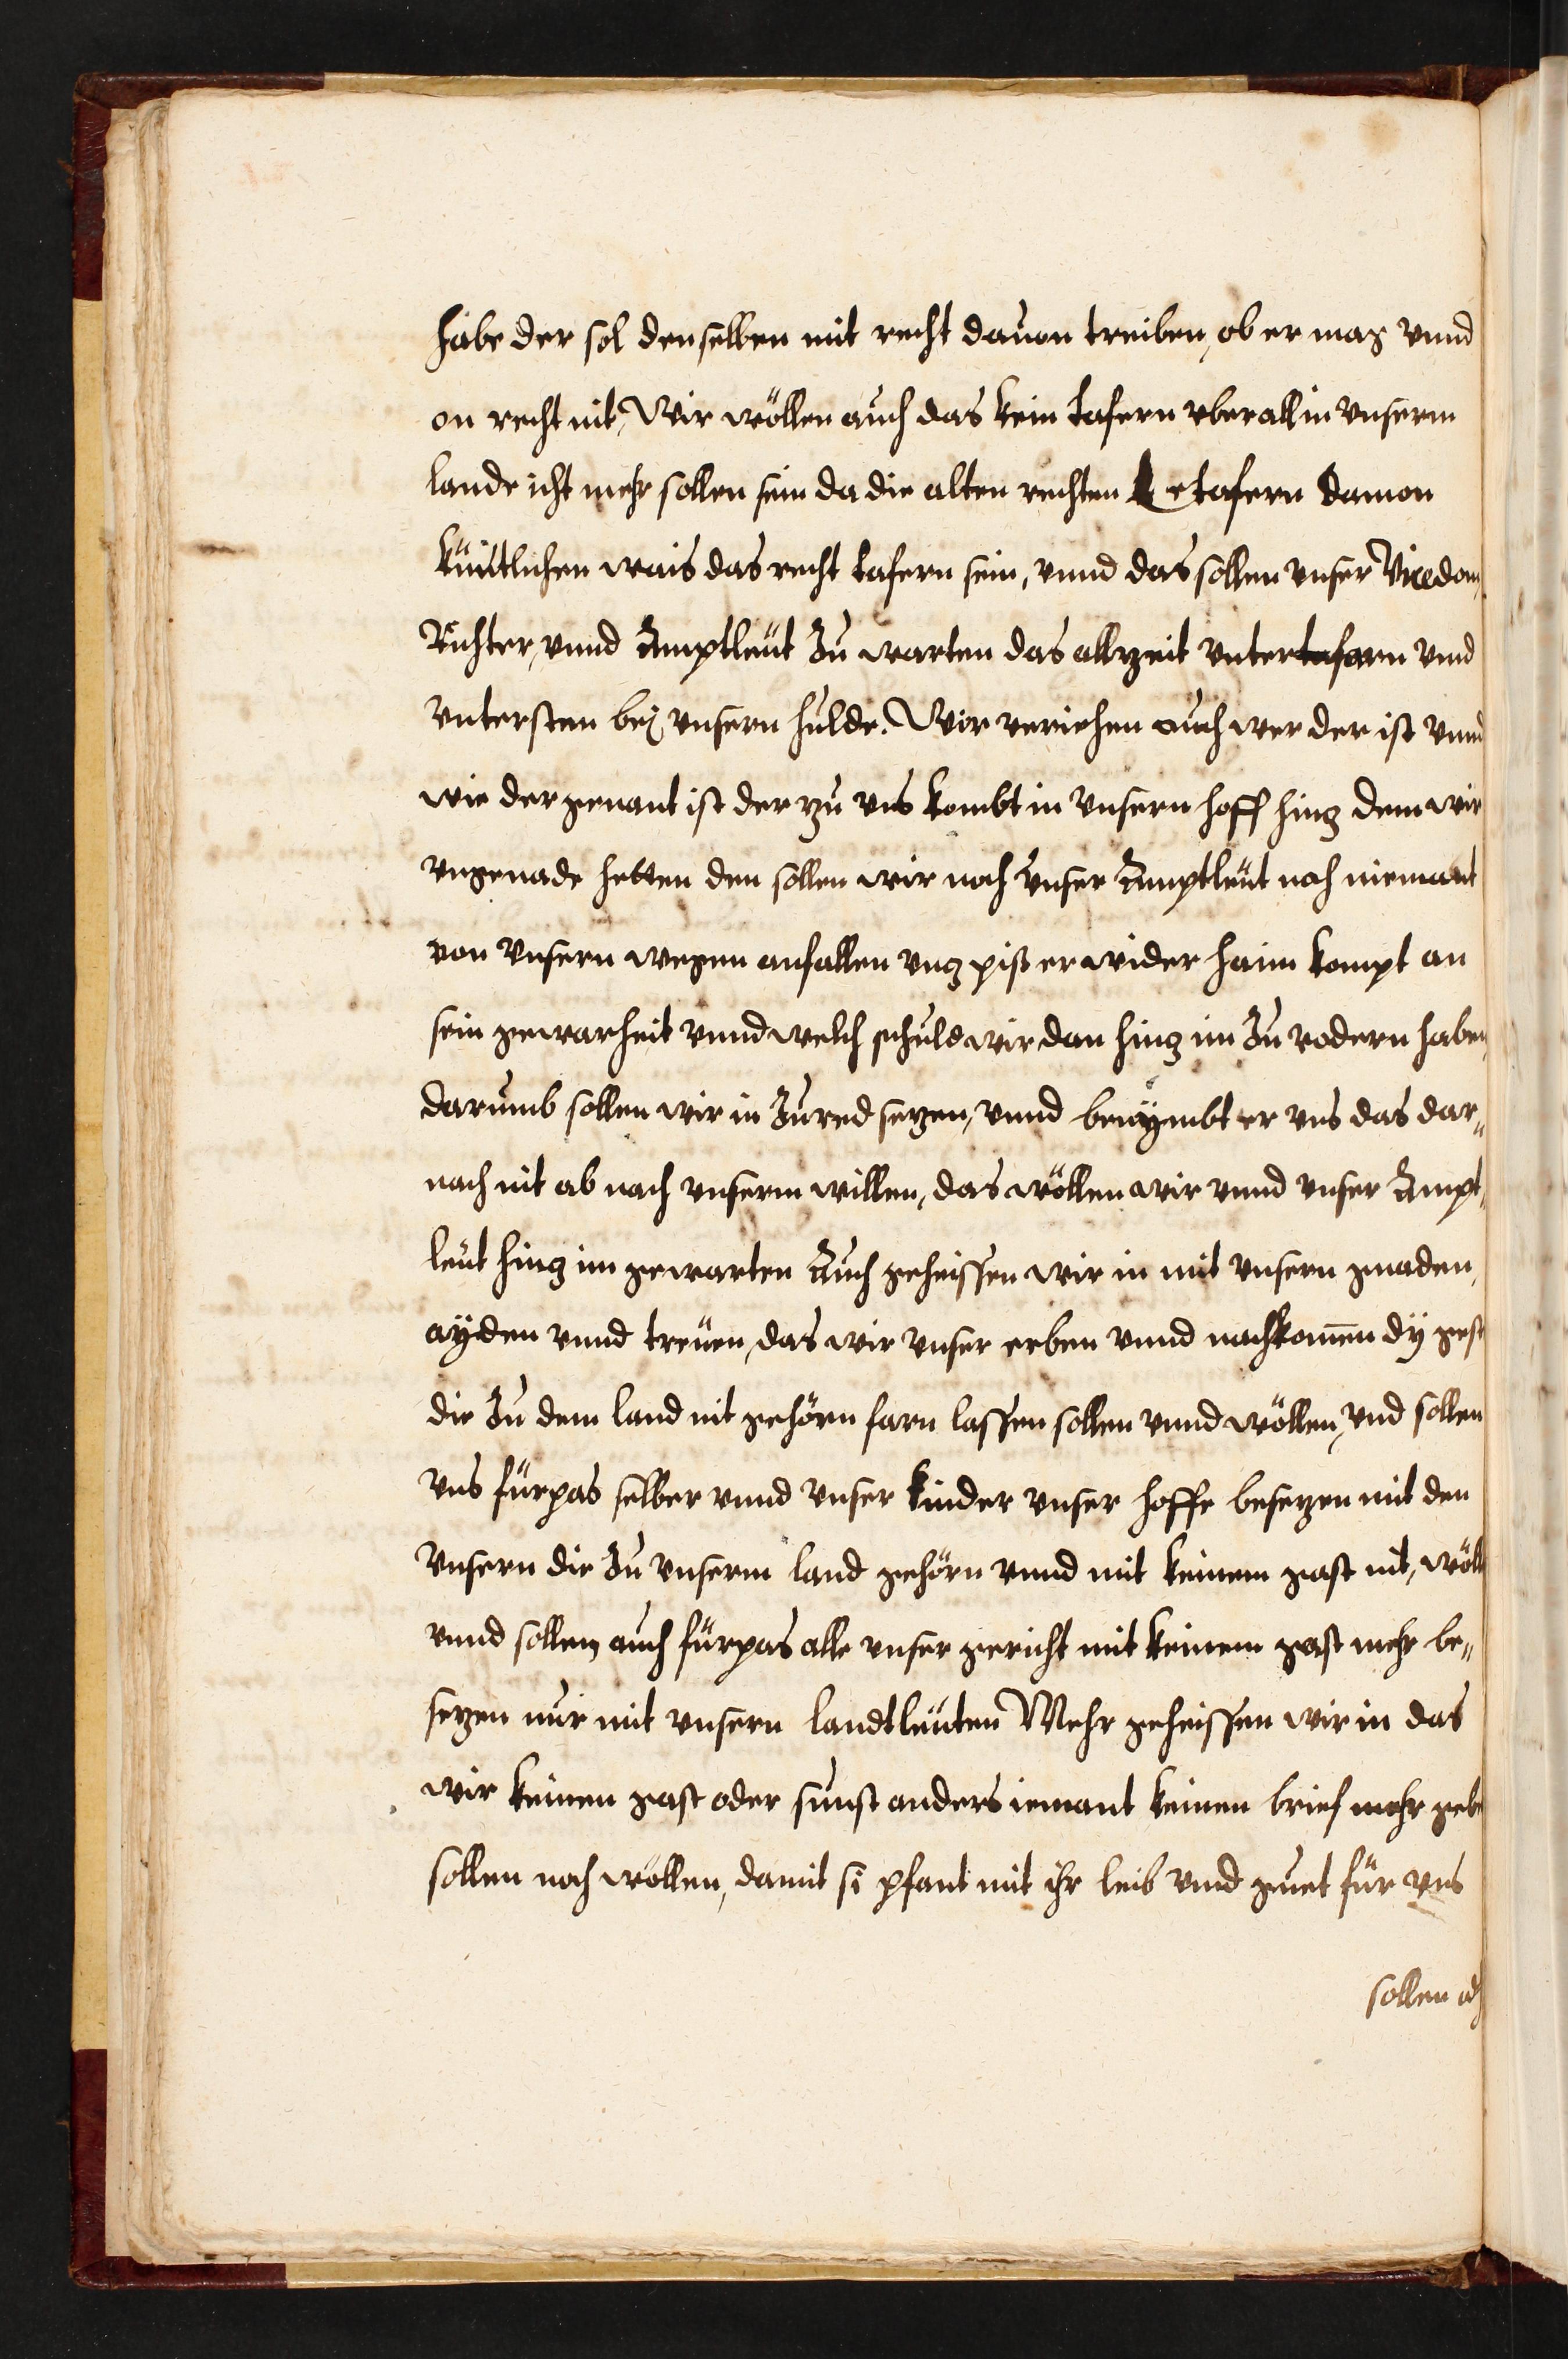 habe der sol denselben mit recht dauon treiben, ob er mag vnnd
on recht nit, Wir wöllen auch das kein tafern vberall in vnserm
lande icht mehr sollen sein da die alten rechten etafern damon
küntlichen wais das recht tafern sein, vnnd das sollen vnser Vicedom,
Richter, vnnd Amptleut Zu warten das allzeit vntertafarn vnd
vntersten bej vnsern hulde. Wir veriehen auch wer der ist vnnd
wie der genant ist der zu vns kombt in vnsern hoff hinz dem wir
vngenade hetten den sollen wir noch vnser Amptleut noch niemant
von vnsern wegen anfallen vnz piß er wider haim kompt an
sein gewarheit vnnd welch schuld wir dan hinz im Zu vodern haben,
darumb sollen wir in Zured sezen, vnnd benÿmbt er vns das dar„
nach nit ab nach vnserm willen, das wöllen wir vnnd vnser Ampt„
leut hinz im gewarten Auch geheissen wir in mit vnsern gnaden,
aÿden vnnd treuen, das wir vnser erben vnnd nachkomen dÿ gest
die Zu dem land nit gehörn farn lassen sollen vnnd wöllen, vnd sollen
vns fürpas selber vnnd vnser kinder vnser hoffe besezen mit den
vnsern die Zu vnserm land gehörn vnnd mit keinem gast nit, wöll
vnnd sollen auch fürpas alle vnser gericht mit keinem gast mehr be„
sezen nur mit vnsern landtleuten Mehr geheissen wir in das
wir keinen gast oder sunst anders iemant keinen brief mehr gebe
sollen noch wöllen, damit si pfant mit ihr leib vnnd guet für vns
sollen